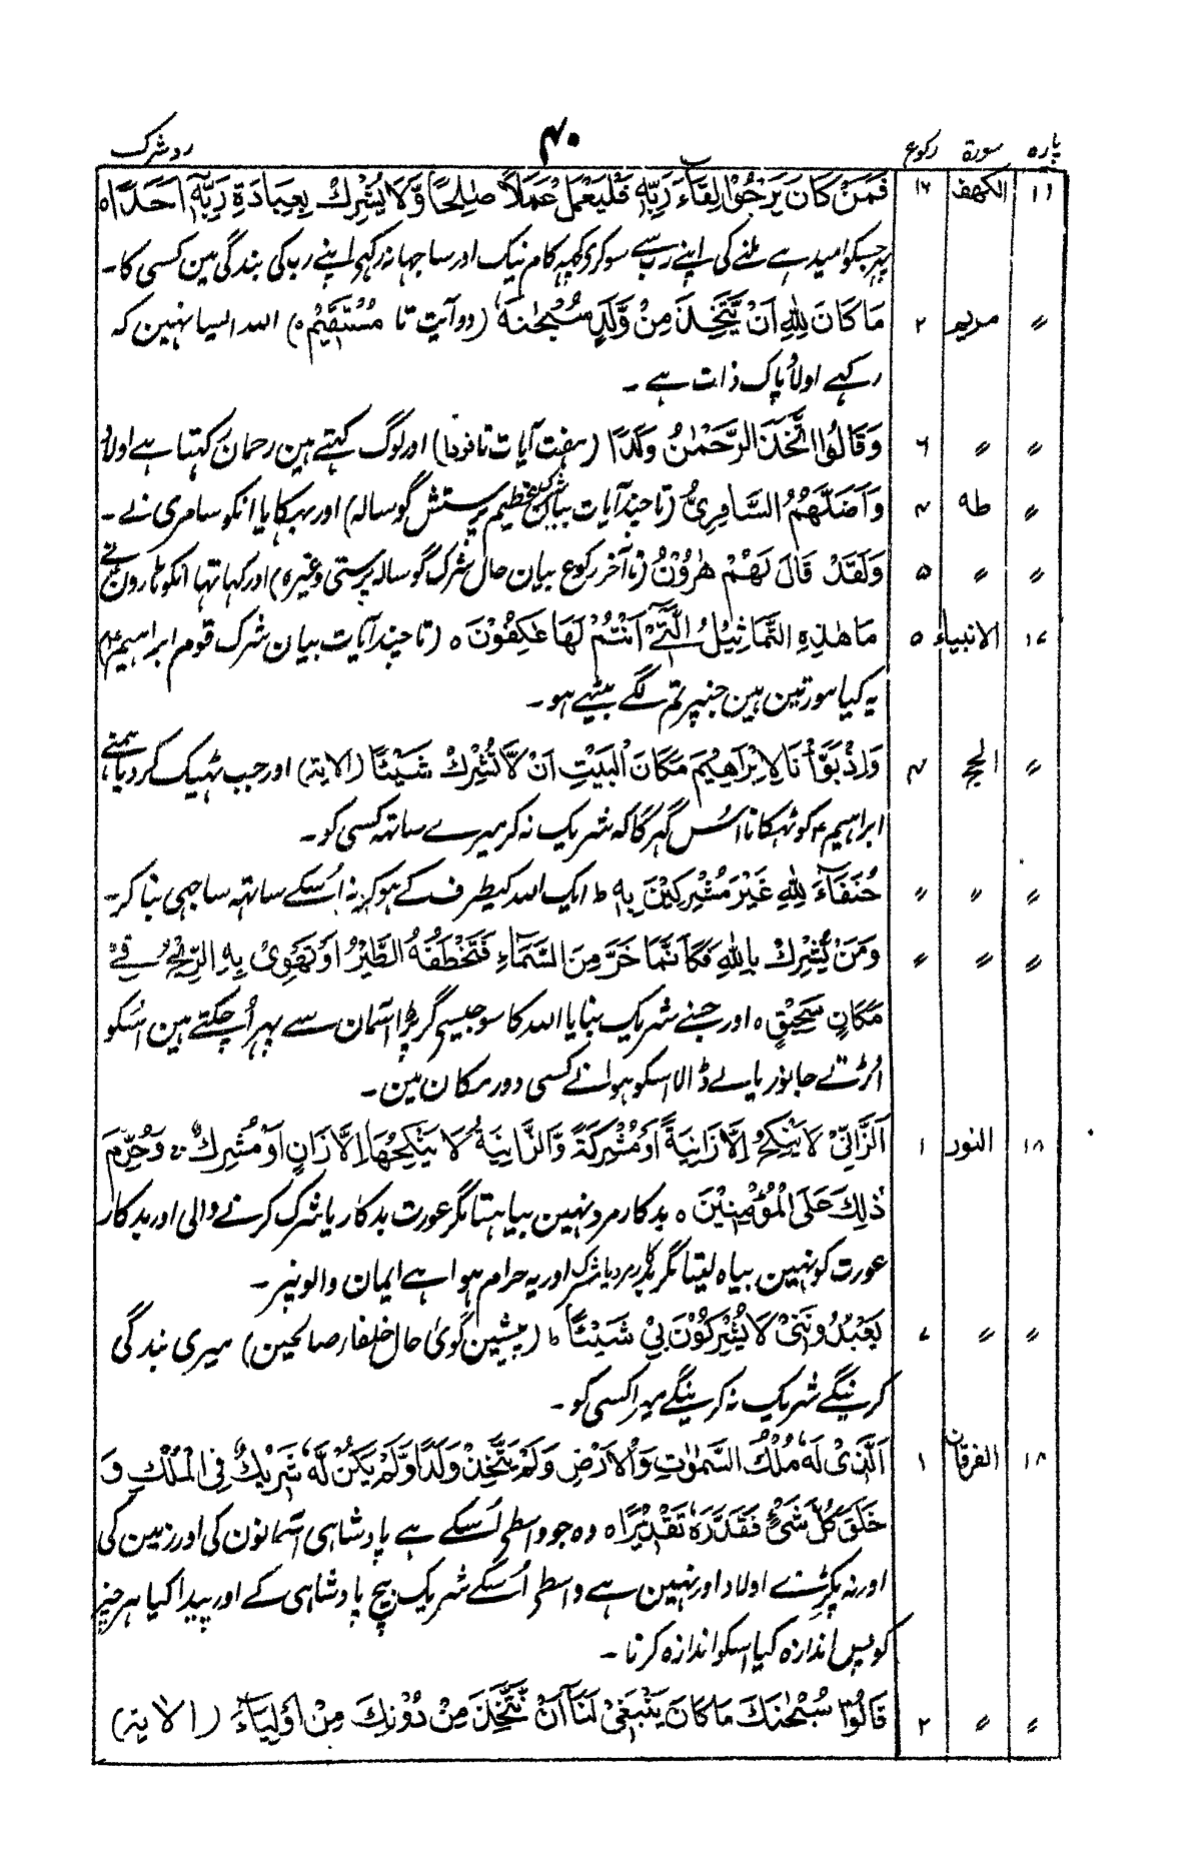 پارہ سورۃ رکوع ۴۰ رد شرک
۱۶ الکہف ۱۲ فَمَنْ كَانَ يَرْجُوْا لِقَآءَ رَبِّهٖ فَلْيَعْمَلْ عَمَلًا صٰلِحًا وَّلَا يُشْرِكْ بِعِبَادَةِ رَبِّهٖٓ اَحَدًا ہ
پہر جسکو امید ہے ملنے کی اپنے رب سے سو کری کچہہ کام نیک اور ساجہا نہ رکہی اپنے رب کی بندگی مین کسی کا۔
〃 مریم ۲ مَا كَانَ لِلّٰهِ اَنْ يَّتَّخِذَ مِنْ وَّلَدٍ سُبْحٰنَهٗ (دو آیت تا مُسْتَقِيْم ہ) اللہ ایسا نہین کہ
رکہے اولاد پاک ذات ہے ۔
〃 〃 ۶ وَقَالُوا اتَّخَذَ الرَّحْمٰنُ وَلَدًا (ہفت آیات تا فردا) اور لوگ کہتے ہین رحمان رکہتا ہے اولاد
〃 طہ ۴ وَاَضَلَّهُمُ السَّامِرِيُّ (تا چند آیات بیان شرک عظیم پرستش گوسالہ) اور بہکایا انکو سامری نے ۔
〃 〃 ۵ وَلَقَدْ قَالَ لَهُمْ هٰرُوْنُ (تا آخر رکوع بیان حال شرک گوسالہ پرستی وغیرہ) اور کہا تہا انکو ہارون نے
۱۷ الانبیاء ۵ مَا هٰذِهِ التَّمَاثِيْلُ الَّتِيْٓ اَنْتُمْ لَهَا عٰكِفُوْنَ ہ (تا چند آیات بیان شرک قوم ابراہیم ؑ)
یہ کیا مورتین ہین جنپر تم لگے بیٹہے ہو ۔
〃 الحج ۴ وَاِذْ بَوَّاْنَا لِاِبْرٰهِيْمَ مَكَانَ الْبَيْتِ اَنْ لَّا تُشْرِكْ شَيْـًٔا (الایۃ) اور جب ٹہیک کر دیا ہمنے
ابراہیم ؑ کو ٹہکانا اُس گہر کا کہ شریک نہ کر میرے ساتہہ کسی کو ۔
〃 〃 〃 حُنَفَآءَ لِلّٰهِ غَيْرَ مُشْرِكِيْنَ بِهٖ ط ایک اللہ کیطرف کے ہو کر نہ اُسکے ساتہہ ساجہی بنا کر ۔
〃 〃 〃 وَمَنْ يُّشْرِكْ بِاللّٰهِ فَكَاَنَّمَا خَرَّ مِنَ السَّمَآءِ فَتَخْطَفُهُ الطَّيْرُ اَوْ تَهْوِيْ بِهِ الرِّيْحُ فِيْ
مَكَانٍ سَحِيْقٍ ہ اور جنے شریک بنایا اللہ کا سو جیسے گر پڑا آسمان سے پہر اُچکتے ہین اسکو
اڑتے جانور یا لے ڈالا اسکو ہوا نے کسی دور مکان مین ۔
۱۸ النور ۱ اَلزَّانِيْ لَا يَنْكِحُ اِلَّا زَانِيَةً اَوْ مُشْرِكَةً وَّالزَّانِيَةُ لَا يَنْكِحُهَا اِلَّا زَانٍ اَوْ مُشْرِكٌ ۚ وَحُرِّمَ
ذٰلِكَ عَلَى الْمُؤْمِنِيْنَ ہ بدکار مرد نہین بیاہتا مگر عورت بدکار یا شرک کرنے والی اور بدکار
عورت کو نہین بیاہ لیتا مگر بدکار مرد یا مشرک اور یہ حرام ہوا ہے ایمان والونپر ۔
〃 〃 ۷ يَعْبُدُوْنَنِيْ لَا يُشْرِكُوْنَ بِيْ شَيْـًٔا ط (پیشین گوئی حال خلفاء صالحین) میری بندگی
کرینگے شریک نہ کرینگے میرا کسی کو ۔
۱۸ الفرقان ۱ اَلَّذِيْ لَهٗ مُلْكُ السَّمٰوٰتِ وَالْاَرْضِ وَلَمْ يَتَّخِذْ وَلَدًا وَّلَمْ يَكُنْ لَّهٗ شَرِيْكٌ فِي الْمُلْكِ وَ
خَلَقَ كُلَّ شَيْءٍ فَقَدَّرَهٗ تَقْدِيْرًا ہ وہ جو واسطی اُسکے ہے پادشاہی آسمانون کی اور زمین کی
اور نہ پکڑے اولاد اور نہین ہے واسطی اُسکے شریک بیچ پادشاہی کے اور پیدا کیا ہر چیز
کو پس اندازہ کیا اسکو اندازہ کرنا ۔
〃 〃 ۲ قَالُوْا سُبْحٰنَكَ مَا كَانَ يَنْبَغِيْ لَنَآ اَنْ نَّتَّخِذَ مِنْ دُوْنِكَ مِنْ اَوْلِيَآءَ (الایۃ)